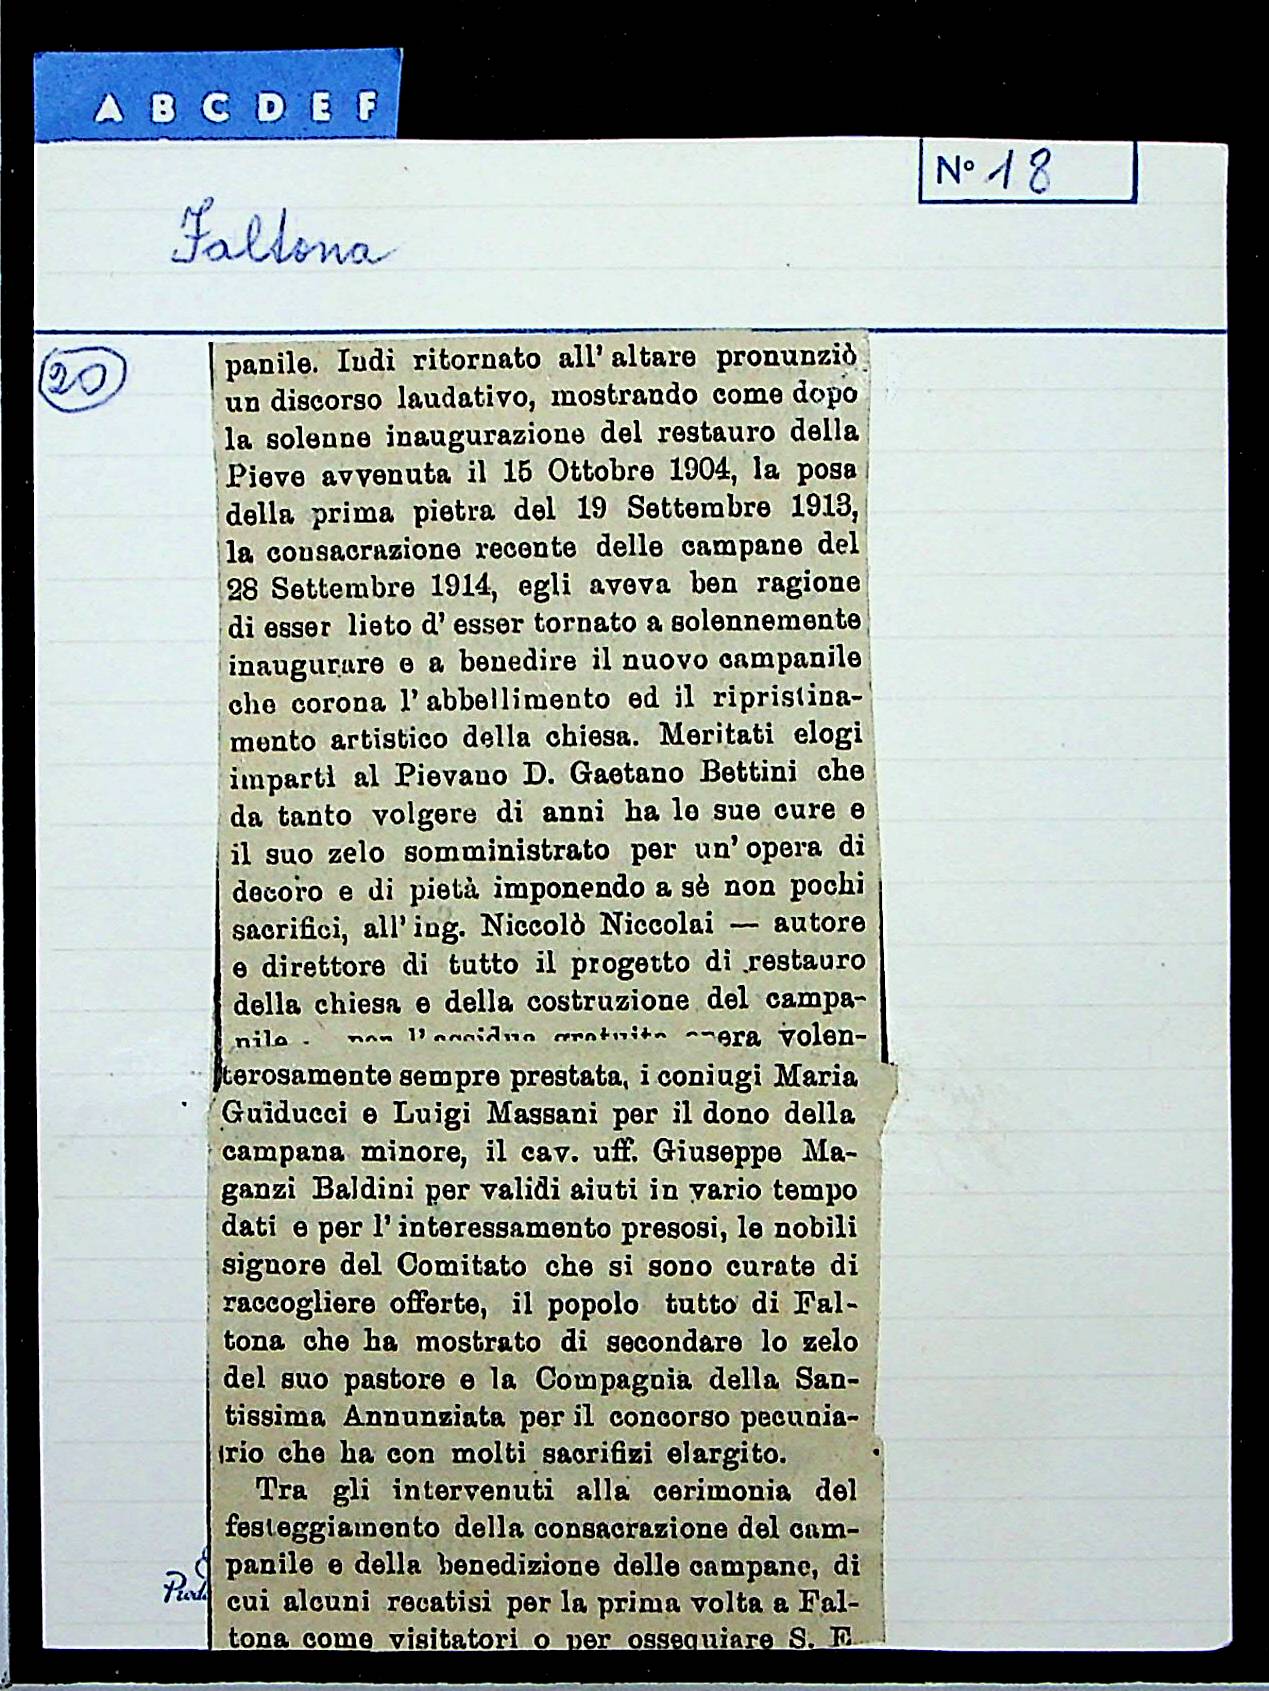 A B C D E F
Nº 18
Faltona
20
panile. Indi ritornato all' altare pronunziò
un discorso laudativo, mostrando come dopo
la solenne inaugurazione del restauro della
Pieve avvenuta il 15 Ottobre 1904, la posa
della prima pietra del 19 Settembre 1913,
la consacrazione recente delle campane del
28 Settembre 1914, egli aveva ben ragione
di esser lieto d' esser tornato a solennemente
inaugurare e a benedire il nuovo campanile
che corona l' abbellimento ed il ripristina-
mento artistico della chiesa. Meritati elogi
impartì al Pievano D. Gaetano Bettini che
da tanto volgere di anni ha le sue cure e
il suo zelo somministrato per un' opera di
decoro e di pietà imponendo a sè non pochi
sacrifici, all' ing. Niccolò Niccolai — autore
e direttore di tutto il progetto di restauro
della chiesa e della costruzione del campa-
nile l'assidua gratuita opera volen-
terosamente sempre prestata, i coniugi Maria
Guiducci e Luigi Massani per il dono della
campana minore, il cav. uff. Giuseppe Ma-
ganzi Baldini per validi aiuti in vario tempo
dati e per l' interessamento presosi, le nobili
signore del Comitato che si sono curate di
raccogliere offerte, il popolo tutto di Fal-
tona che ha mostrato di secondare lo zelo
del suo pastore e la Compagnia della San-
tissima Annunziata per il concorso pecunia-
rio che ha con molti sacrifizi elargito.
Tra gli intervenuti alla cerimonia del
festeggiamento della consacrazione del cam-
panile e della benedizione delle campane, di
cui alcuni recatisi per la prima volta a Fal-
tona come visitatori o per ossequiare S. E.